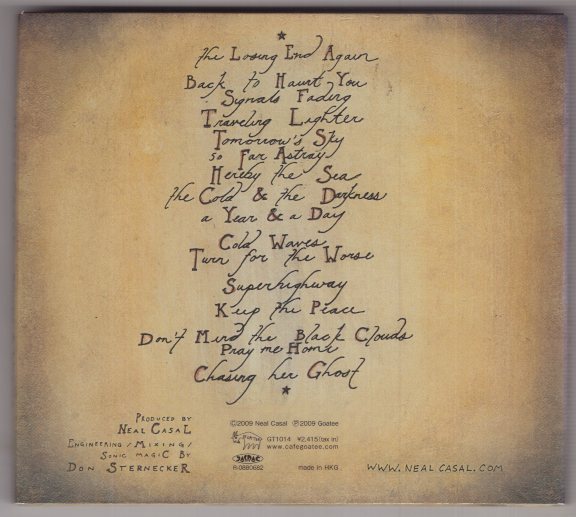 the Losing End Again
Back to Haunt You
Signals Fading
Traveling Lighter
Tomorrow's Sky
so Far Astray
Hereby the Sea
the Cold & the Darkness
a Year & a Day
Cold Waves
Turn for the Worse
Superhighway
Keep the Peace
Don't Mind the Black Clouds
Pray me Home
Chasing her Ghost
Produced by
Neal Casal
Engineering / Mixing /
Sonic magic By
Don Sternecker
©2009 Neal Casal ℗2009 Goatee
GT1014 ¥2,415(tax in)
www.cafegoatee.com
R-0880682 made in HKG
www.nealcasal.com